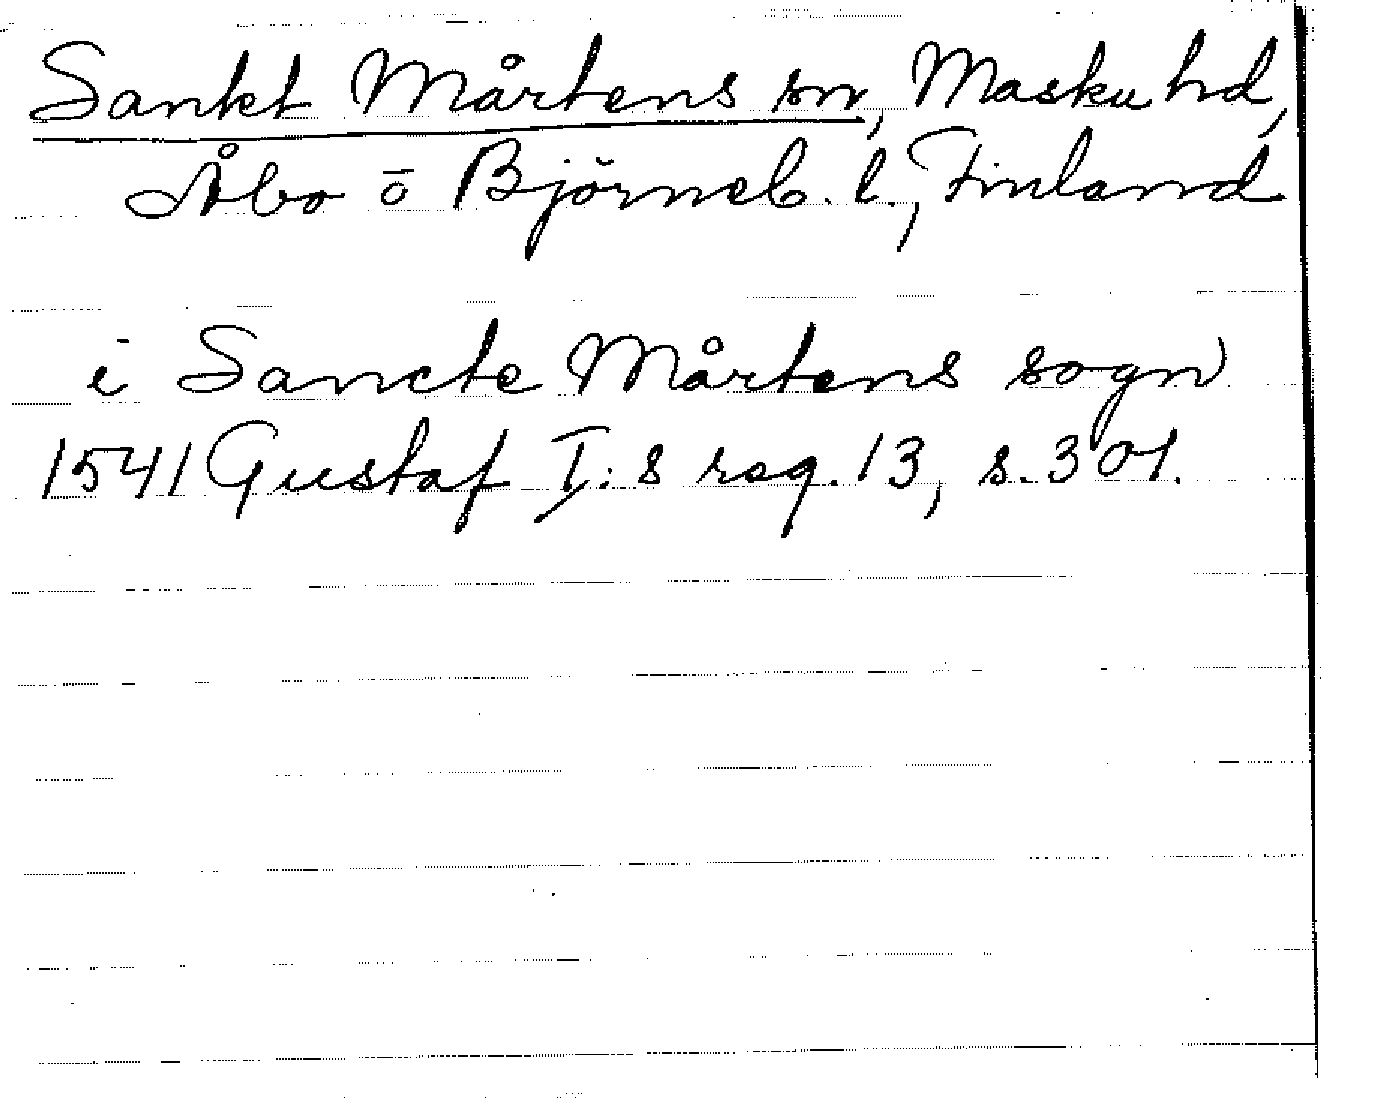 Sankt Mårtens sn, Masku hd,
Åbo o Björneb. l., Finland
i Sancte Mårtens sogn
1541 Gustaf I:s reg. 13, s. 301.